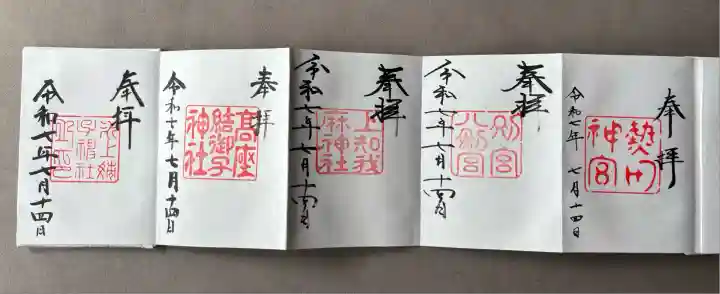 奉拝
熱田
神宮
令和七年 七月十四日
奉拝
別宮
八剣宮
令和七年七月十四日
奉拝
上知我
麻神社
令和七年七月十四日
奉拝
高座
結御子
神社
令和七年七月十四日
奉拝
氷上姉
子神社
令和七年七月十四日